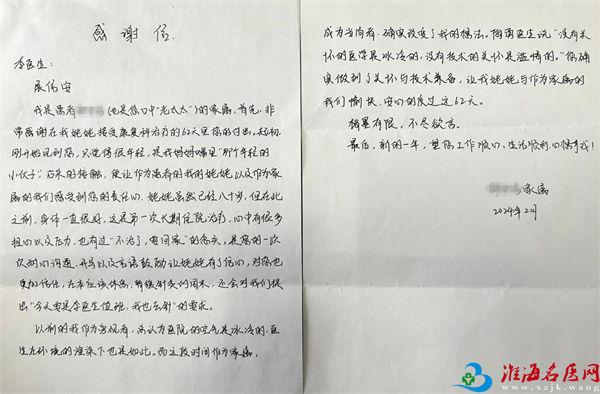 感谢信
李医生：
展信安
我是患者（也是您口中“老太太”）的家属，首先，非
常感谢在我姥姥接受康复科治疗的62天里您的付出。起初
刚开始见到您，只觉得很年轻，是我妈妈嘴里“那个年轻的
小伙子”；后来的接触，使让作为患者的我的姥姥以及作为家
属的我们感受到您的责任心。姥姥虽然已经八十岁，但在此
之前，身体一直很好，这是第一次长期住院治疗，心中有很多
担心以及压力，也有过“不治了，要回家”的念头，是您的一次
次耐心沟通，并予以及言语鼓励让姥姥有了信心，对您也
更加信任，在本应该休息，暂缓针灸的周末，还会对我们提
出“今天要是李医生值班，我也去针”的要求。
以前的我作为旁观者，总认为医院的空气是冰冷的，医
生在环境的渲染下也是如此。而这段时间作为家属，
成为当局者，确实改变了我的想法。陶勇医生说“没有关
怀的医学是冰冷的，没有技术的关怀是滥情的。”您确
实做到了关怀与技术兼备，让我姥姥与作为家属的
我们愉快、安心的度过这62天。
篇墨有限，不尽欲言。
最后，新的一年，望您工作顺心、生活顺利、心情常我！
家属
2024年2月
淮海名医网
www.xzjk.wang